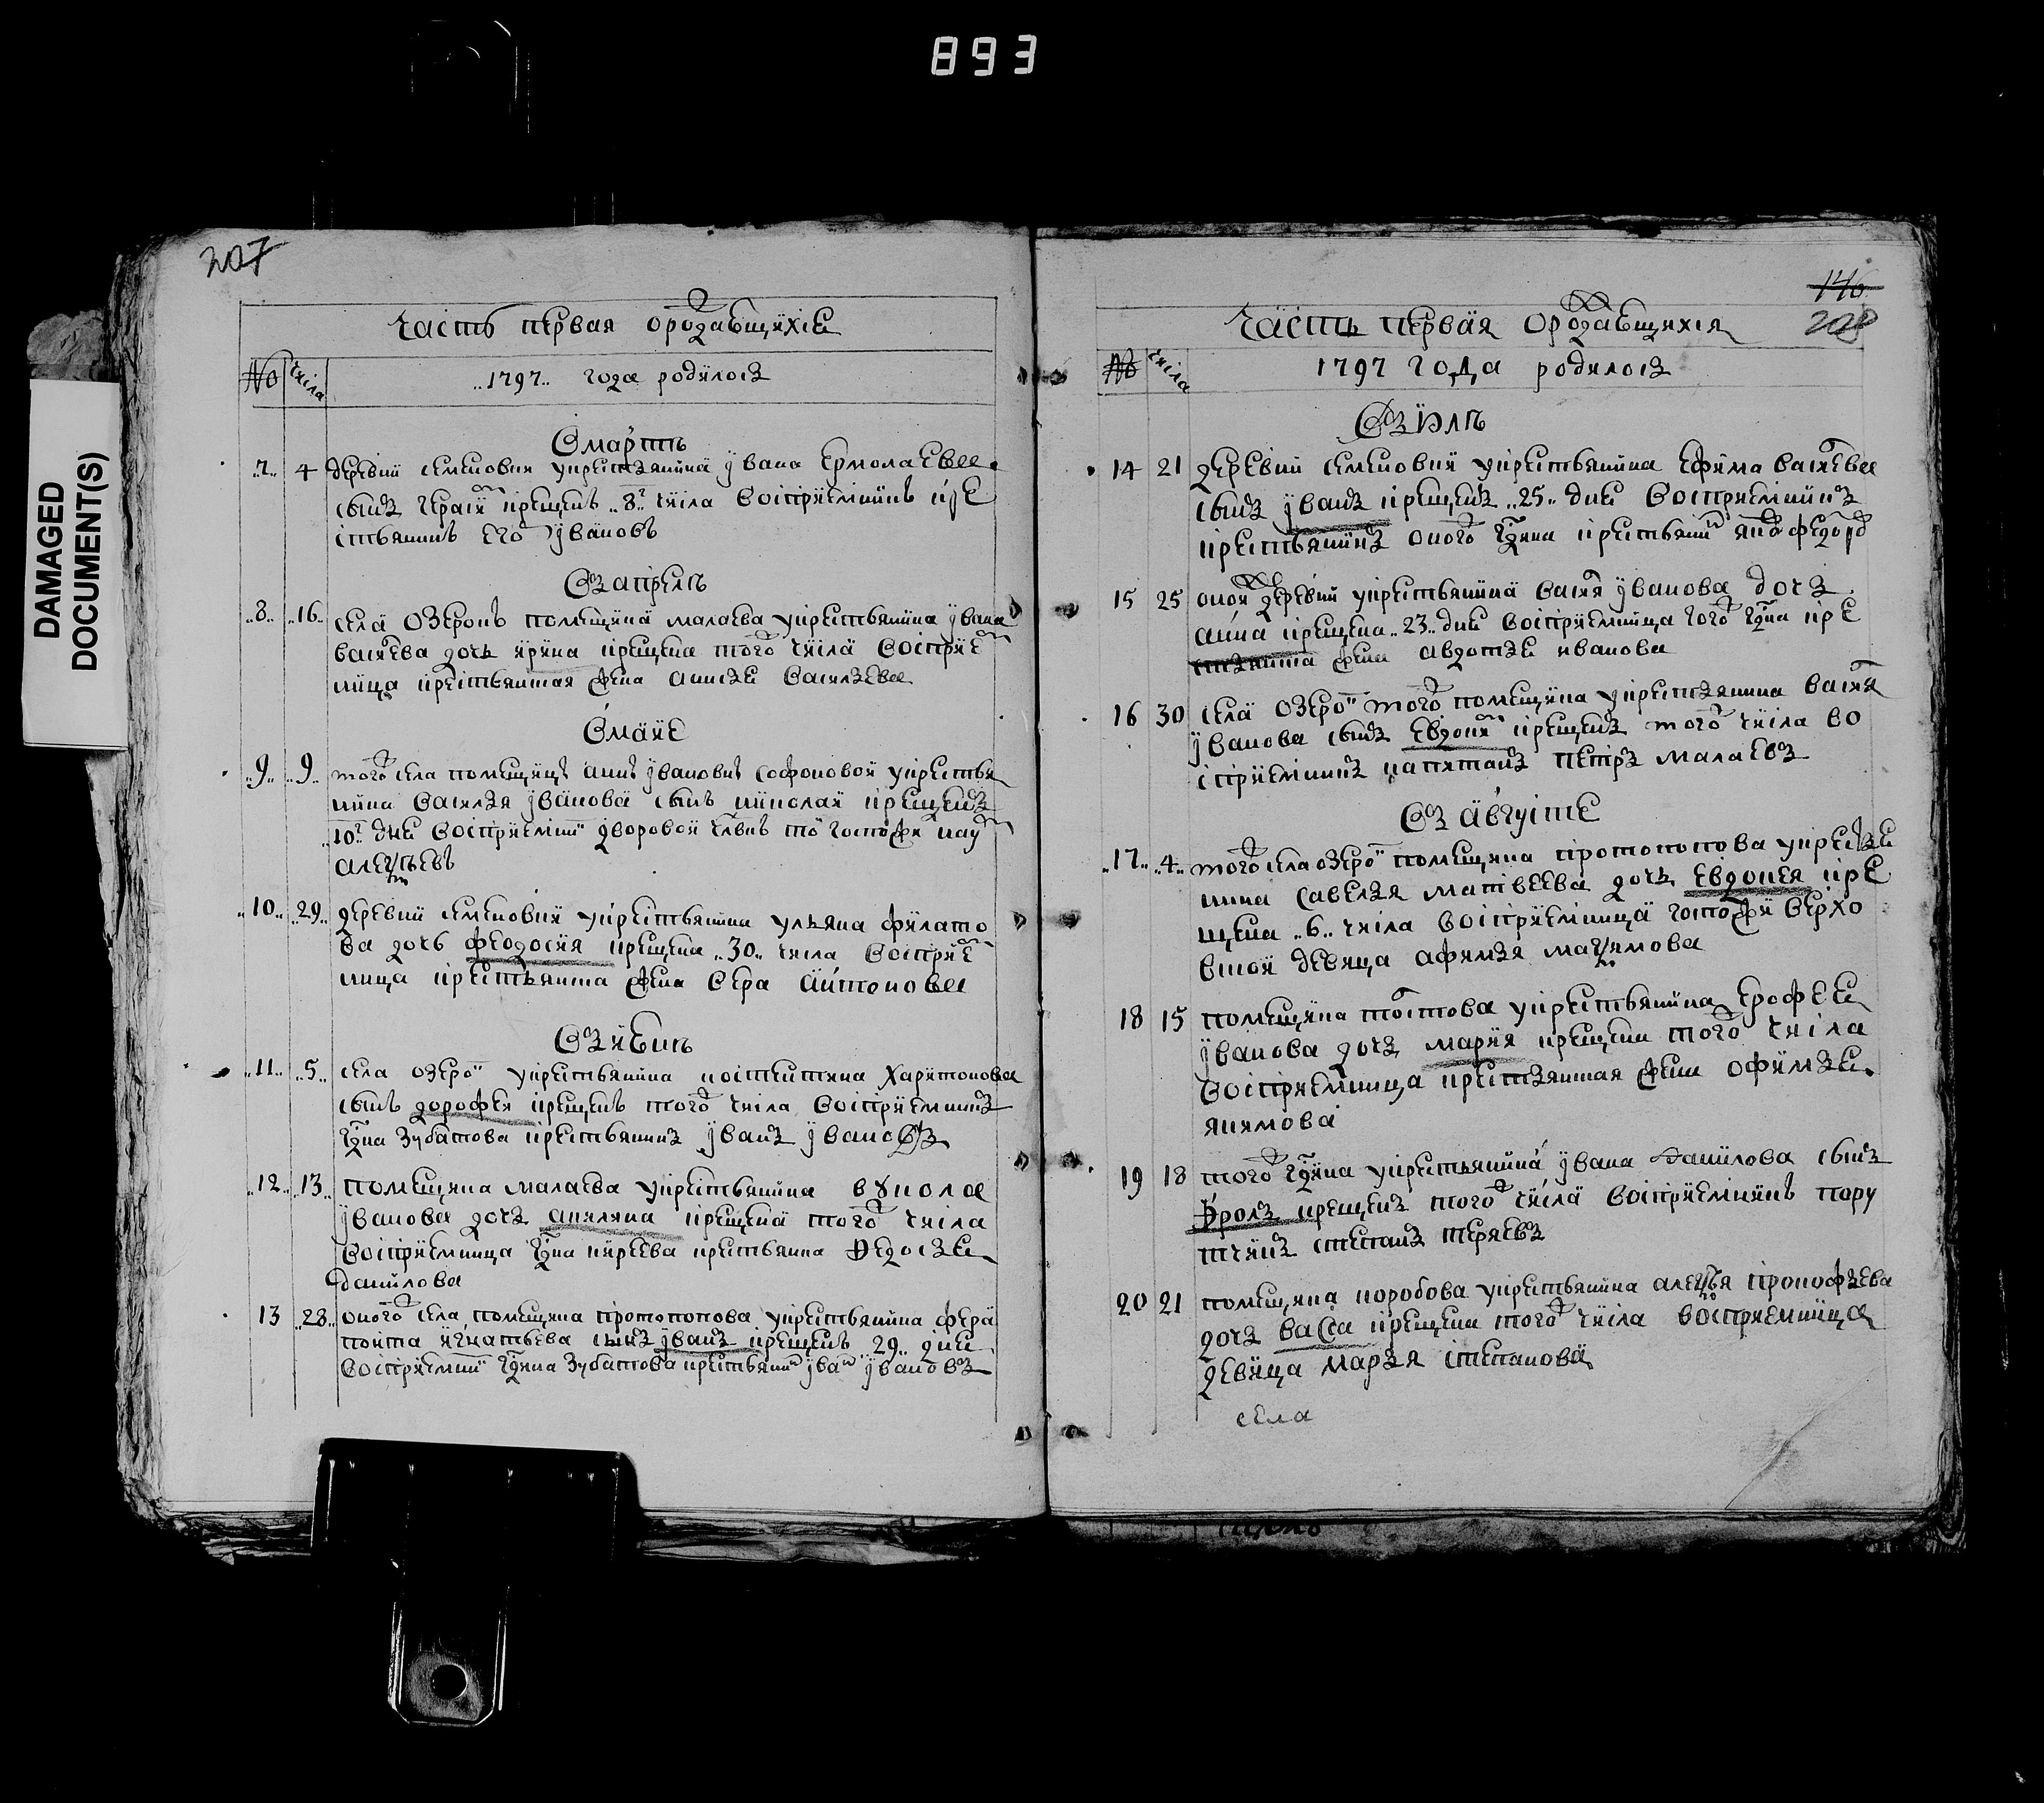 893
DAMAGED
DOCUMENT(S)
207
Часть первая ородзавщихсе
№ числа ..1797.. года родилось
Въ мартъ
..7.. 4 деревни семеновки укрестьянина ивана ермолаева
сынъ герасим крещенъ ..8г числа восприемникъ кре
стьянинъ его ивановъ
Въ апрелъ
..8. ..16.. села озерокъ помещика малаева укрестьянина ивана
васильева дочь ирина крещена того числа восприем
ница крестьянская жена анисье васильева
Въ маие
..9.. ..9.. того села помещицы анны ивановны софоновой укрестья
нина василья иванова сынъ николаи крещенъ
..10г дне восприемни дворовой
алексеевъ
..10.. ..29.. деревни семеновки укрестьянина ульяна филато
ва дочь феодосия крещена ..30.. числа восприем
ница крестьянка жена вера антонова
Въ июнъ
..11.. ..5.. села озеро укрестьянина костентина харитонова
сынъ дорофеи крещенъ того числа восприемникъ
гдна зубатова крестьянинъ иванъ ивановъ
..12.. ..13.. помещика малаева укрестьянина вукола
иванова дочь акилина крещена того числа
восприемница гдна киреева крестьянка федосье
данилова
13 ..28.. оного села помещика протопопова укрестьянина фера
понта игнатьева сынъ иванъ крещенъ 29.. дне
восприемни гдина зубатова крестьянин иван ивановъ
146
208
Часть первая ородзавщихся
№ числа 1797 года родилось
Въ июлъ
14 21 деревни семеновки укрестьянина ефима васильева
сынъ иванъ крещенъ ..25.. дне восприемникъ
крестьянинъ оного гдина крестьянин яков федоро
15 25 оной деревни укрестьянина васия иванова дочь
анна крещена ..23.. дне восприемница того гдина кре
стьянка жена авдотье иванова
16 30 села озеро того помещика укрестьянина васия
иванова сынъ евдоки крещенъ того числа во
сприемникъ капитанъ петръ малаевъ
Въ августе
..17.. ..4.. того села озеро помещика протопопова укресье
нина савелья матвеева дочь евдокея кре
щена ..6.. числа восприемница госпожи верхо
вской девица афимья максимова
18 15 помещика толстова укрестьянина ерофее
иванова дочь мария крещена того числа
восприемница крестьянская жена офимье
якимова
19 18 того гдина укрестьянина ивана данилова сынъ
фролъ крещенъ того числа восприемникъ пору
тчикъ степанъ теряевъ
20 21 помещика коробова укрестьянина алексея прокофьева
дочь васса крещена того числа восприемница
девица марья степанова
села